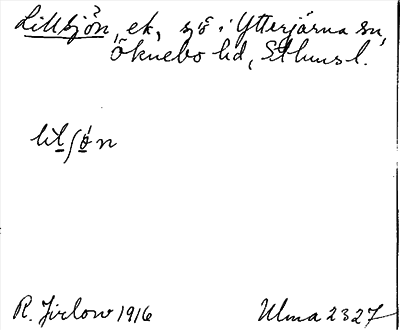 Lillsjön, ek, sjö i Ytterjärna sn,
Öknebo hd, Sthms l.
lilſön
R. Jirlow 1916 Ulma 2327